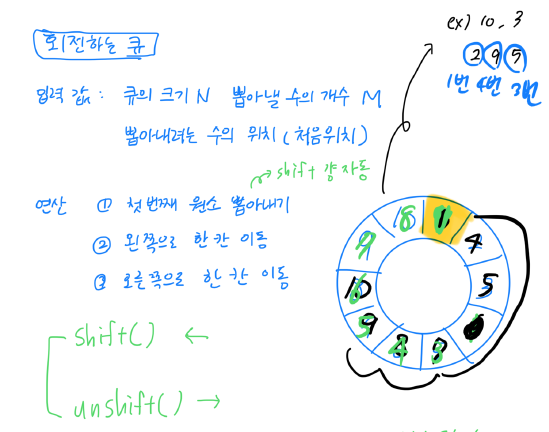 회전하는 큐
ex) 10, 3
2 9 5
1번 4번 3번
입력 값 : 큐의 크기 N 뽑아낼 수의 개수 M
뽑아내려는 수의 위치 (처음위치)
shift 걍 자동
연산 ① 첫 번째 원소 뽑아내기
② 왼쪽으로 한 칸 이동
③ 오른쪽으로 한 칸 이동
shift() ←
unshift() →
1
4
5
3
9
10
9